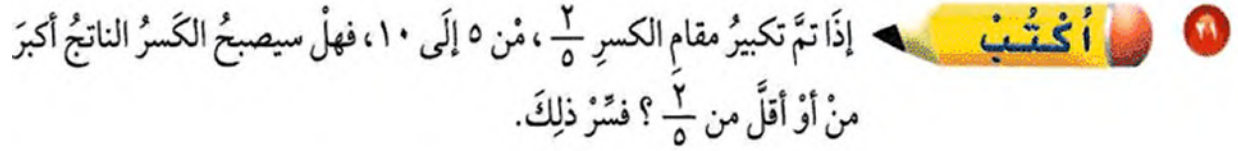 ٢١ اُكْتُبْ إِذَا تمَّ تكبيرُ مقامِ الكسرِ ٢/٥ ، مْن ٥ إلَى ١٠، فهلْ سيصبحُ الكَسرُ الناتجُ أكبرَ
منْ أوْ أقلَّ من ٢/٥ ؟ فسِّرْ ذلِكَ.